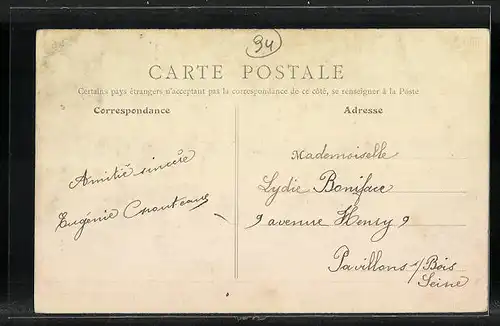 34
CARTE POSTALE
Certains pays étrangers n'acceptant pas la correspondance de ce côté, se renseigner à la Poste
Correspondance
Adresse
Mademoiselle
Lydie Boniface
9 avenue Henry 9
Pavillons s/Bois
Seine
Amitié sincère
Eugénie